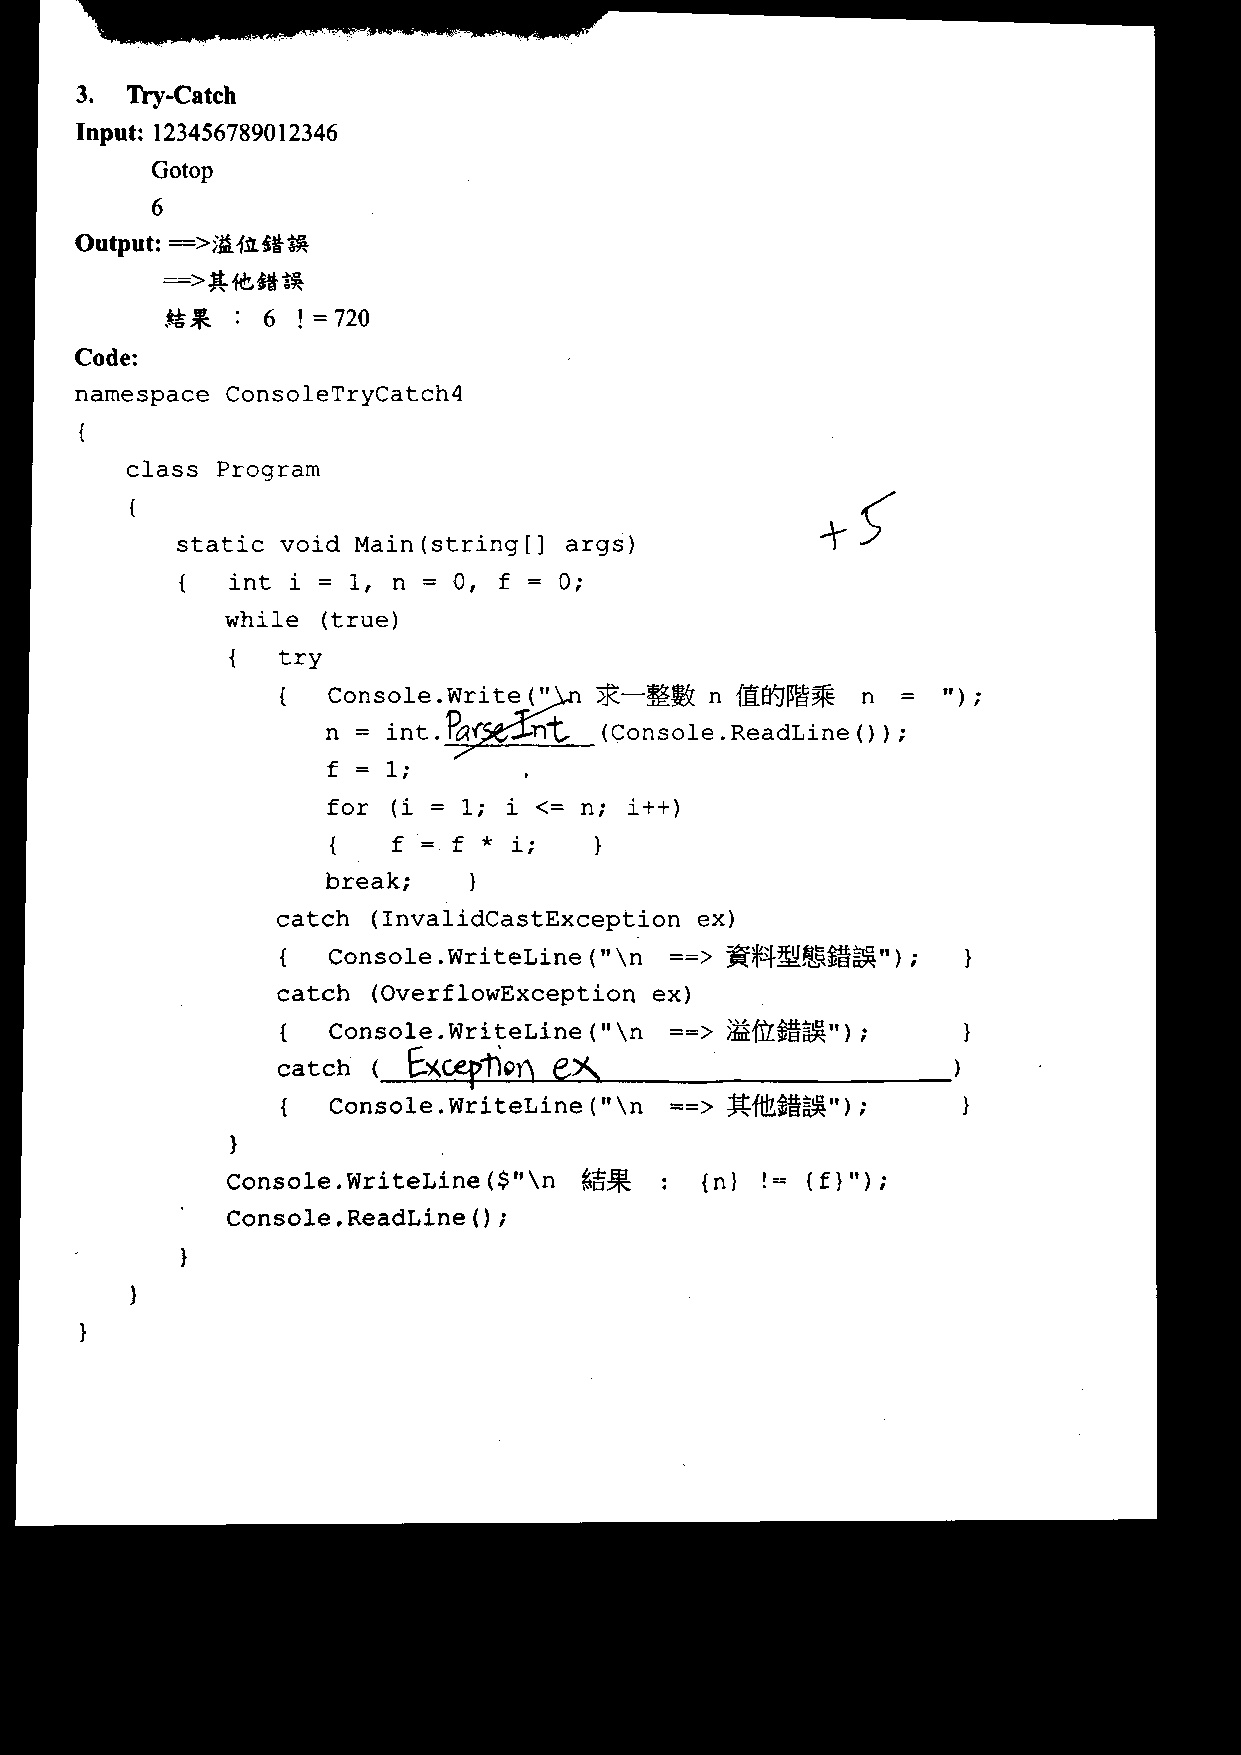 3. Try-Catch
Input: 123456789012346
Gotop
6
Output: ==>溢位錯誤
==>其他錯誤
結果 : 6 ! = 720
Code:
namespace ConsoleTryCatch4
{
class Program
{
+5
static void Main(string[] args)
{ int i = 1, n = 0, f = 0;
while (true)
{ try
{ Console.Write("\n 求一整數 n 值的階乘 n = ");
n = int.ParseInt (Console.ReadLine());
f = 1;
for (i = 1; i <= n; i++)
{ f = f * i; }
break; }
catch (InvalidCastException ex)
{ Console.WriteLine("\n ==> 資料型態錯誤"); }
catch (OverflowException ex)
{ Console.WriteLine("\n ==> 溢位錯誤"); }
catch ( Exception ex )
{ Console.WriteLine("\n ==> 其他錯誤"); }
}
Console.WriteLine($"\n 結果 : {n} != {f}");
Console.ReadLine();
}
}
}